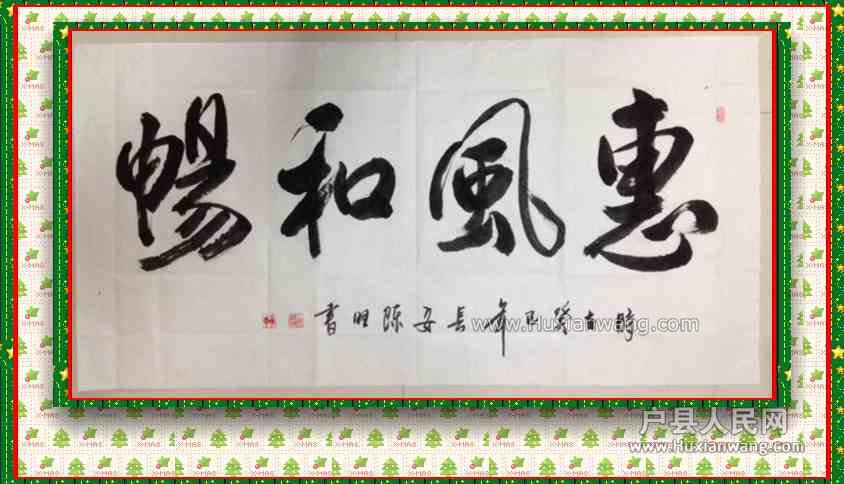 惠風和暢
時在癸巳年長安陈旺書
www.Huxianwang.com
户县人民网
www.Huxianwang.com
X-MAS